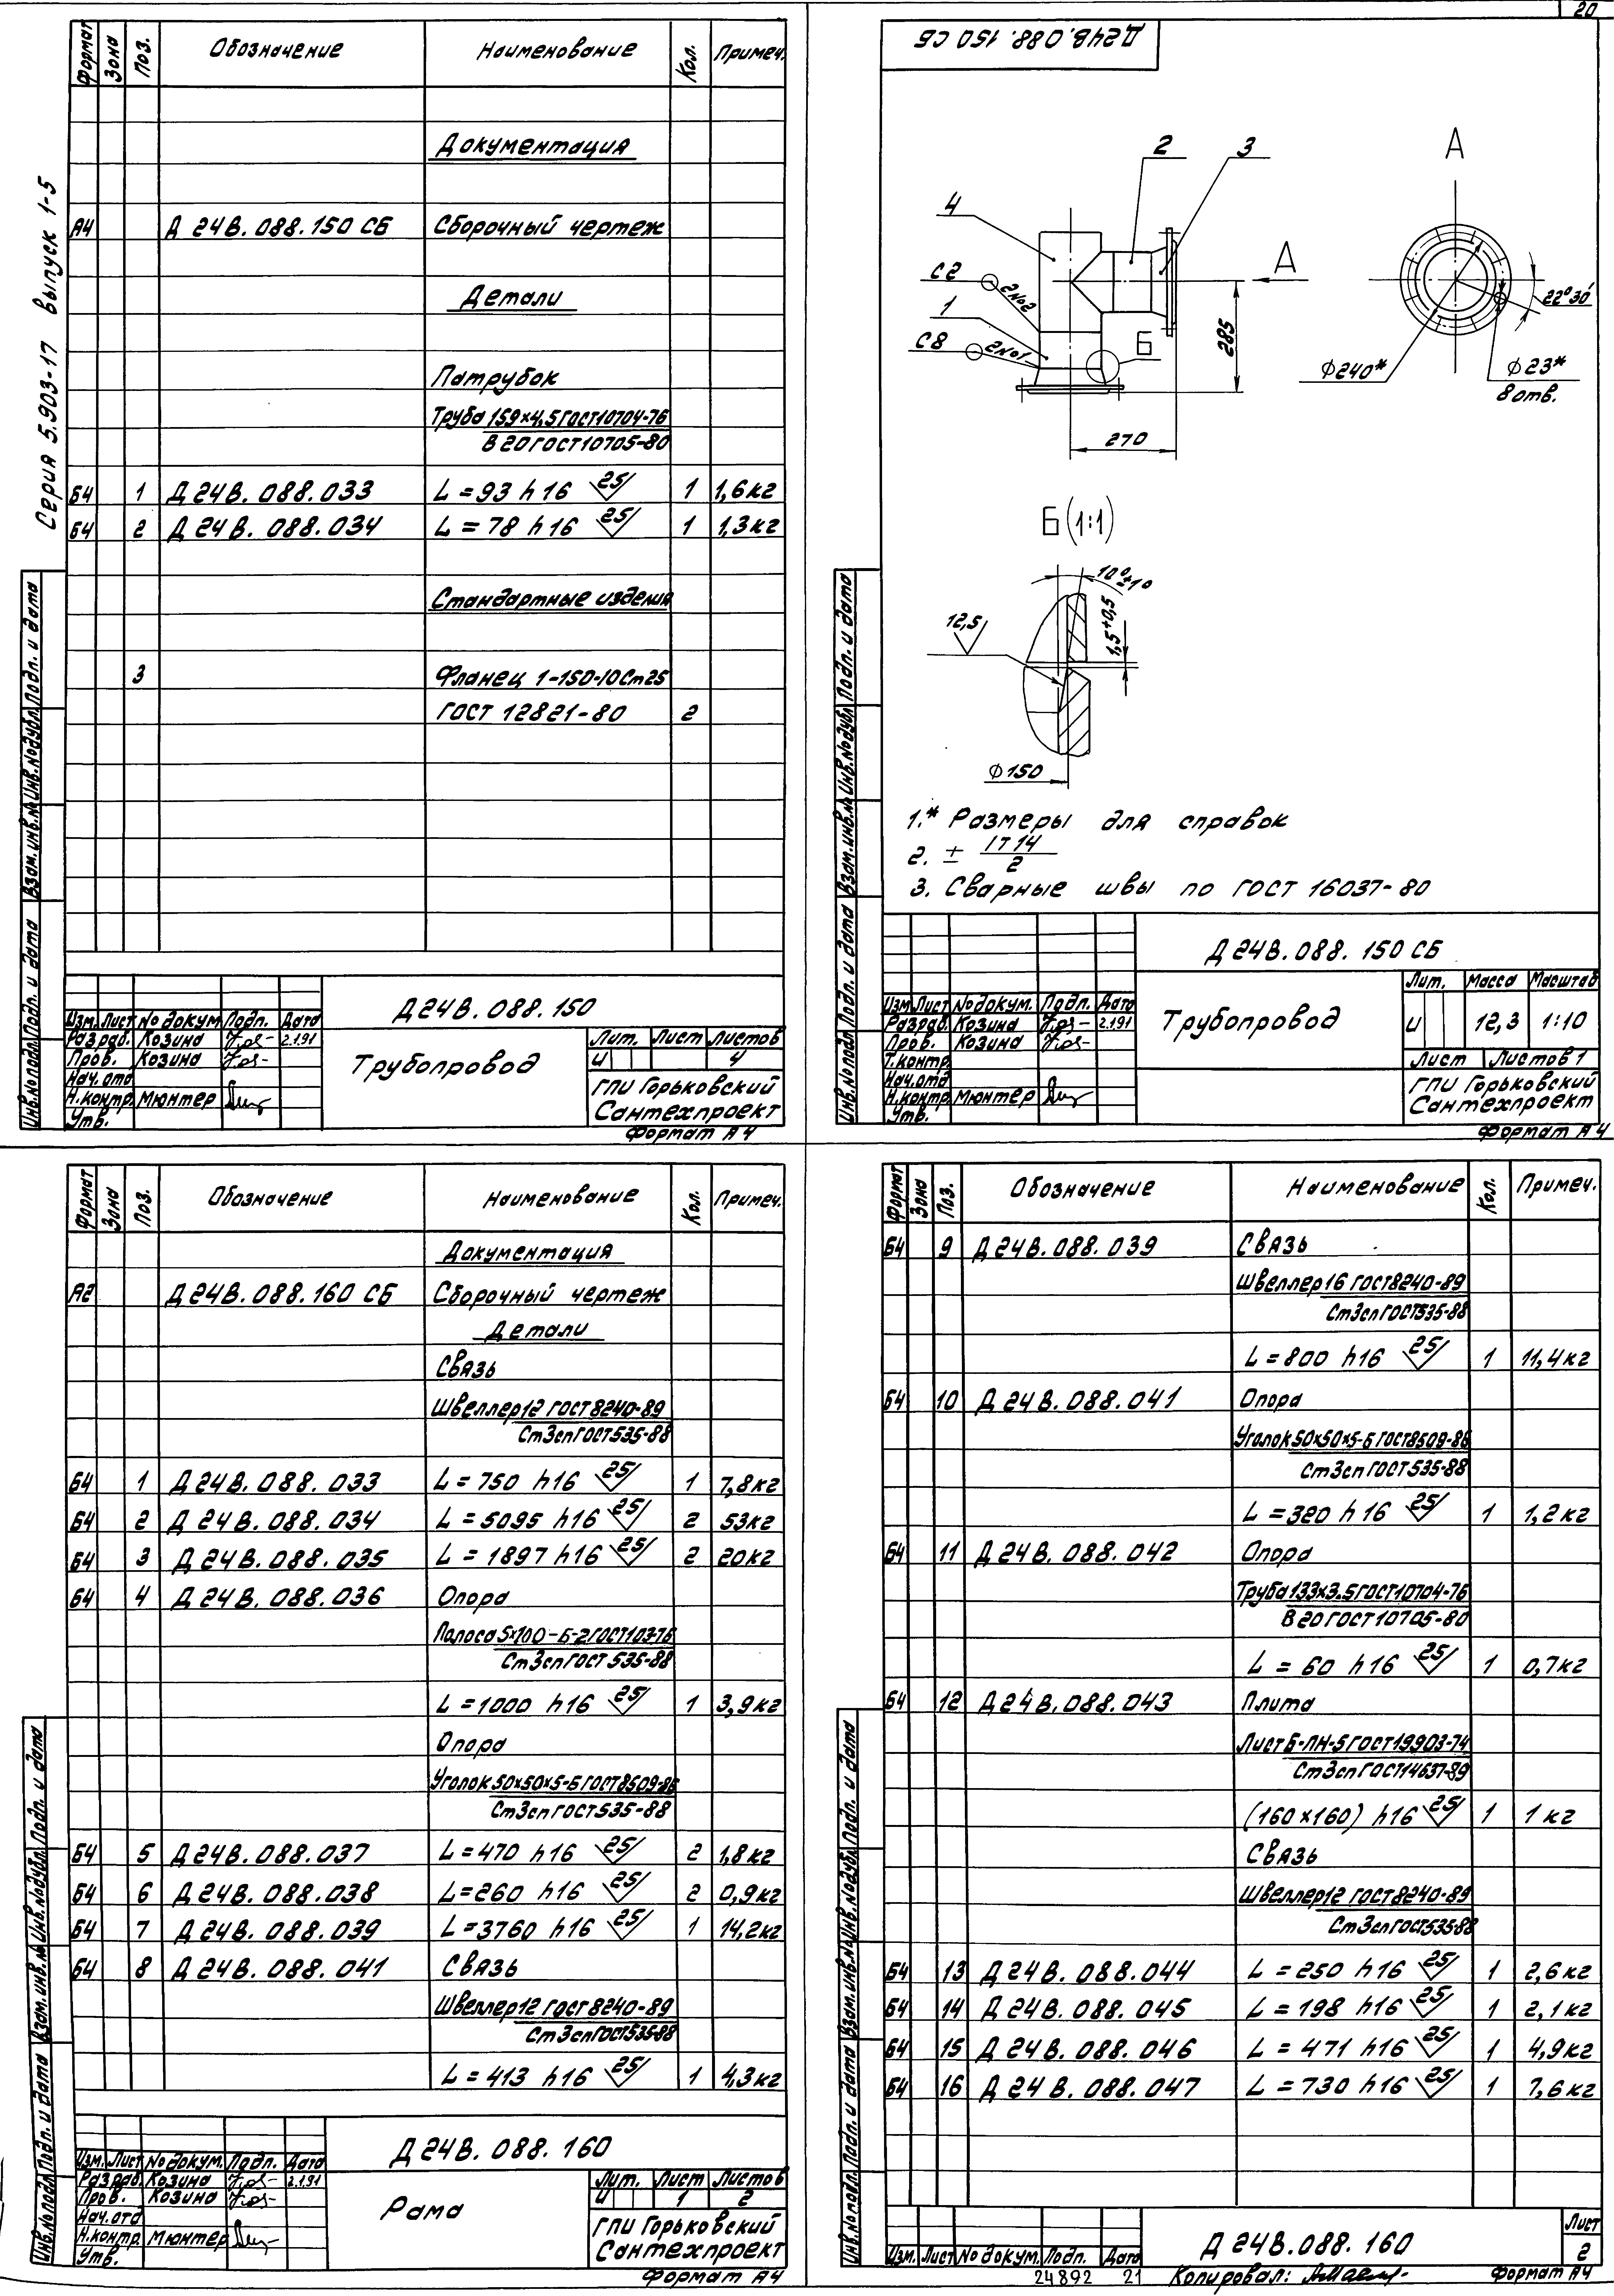 20
Серия 5.903-17 выпуск 1-5
Формат Зона Поз. Обозначение Наименование Кол. Примеч.
Документация
А4 Д 24В. 088. 150 СБ Сборочный чертеж
Детали
Патрубок
Труба 159×4,5 ГОСТ 10704-76
В 20 ГОСТ 10705-80
Б4 1 Д 24В. 088. 033 L = 93 h16 25 1 1,6кг
Б4 2 Д 24В. 088. 034 L = 78 h16 25 1 1,3кг
Стандартные изделия
3 Фланец 1-150-10 Ст25
ГОСТ 12821-80 2
Инв.№ подл. Подп. и дата Взам.инв.№ Инв.№ дубл. Подп. и дата
Д 24В. 088. 150
Изм. Лист № докум. Подп. Дата
Разраб. Козина 2.1.91
Пров. Козина
Нач.отд
Н.контр. Мюнтер
Утв.
Трубопровод
Лит. Лист Листов
И 4
ГПИ Горьковский
Сантехпроект
Формат А4
Д 24В. 088. 150 СБ
2 3
4
С2 2 №2
1
С8 2 №1
Б
А
285
270
А
22°30′
Ф240*
Ф23*
8 отв.
Б (1:1)
10°±1°
1,5+0,5
12,5
Ф150
1.* Размеры для справок
2. ± IT 14
2
3. Сварные швы по ГОСТ 16037-80
Инв.№ подл. Подп. и дата Взам.инв.№ Инв.№ дубл. Подп. и дата
Д 24В. 088. 150 СБ
Изм. Лист № докум. Подп. Дата
Разраб. Козина 2.1.91
Пров. Козина
Т.контр.
Нач.отд
Н.контр. Мюнтер
Утв.
Трубопровод
Лит. Масса Масштаб
И 12,3 1:10
Лист Листов 1
ГПИ Горьковский
Сантехпроект
Формат А4
Формат Зона Поз. Обозначение Наименование Кол. Примеч.
Документация
А2 Д 24В. 088. 160 СБ Сборочный чертеж
Детали
Связь
Швеллер 12 ГОСТ 8240-89
Ст3сп ГОСТ 535-88
Б4 1 Д 24В. 088. 033 L = 750 h16 25 1 7,8кг
Б4 2 Д 24В. 088. 034 L = 5095 h16 25 2 53кг
Б4 3 Д 24В. 088. 035 L = 1897 h16 25 2 20кг
Б4 4 Д 24В. 088. 036 Опора
Полоса 5×100-Б-2 ГОСТ 103-76
Ст3сп ГОСТ 535-88
L = 1000 h16 25 1 3,9кг
Опора
Уголок 50×50×5-Б ГОСТ 8509-86
Ст3сп ГОСТ 535-88
Б4 5 Д 24В. 088. 037 L = 470 h16 25 2 1,8кг
Б4 6 Д 24В. 088. 038 L = 260 h16 25 2 0,9кг
Б4 7 Д 24В. 088. 039 L = 3760 h16 25 1 14,2кг
Б4 8 Д 24В. 088. 041 Связь
Швеллер 12 ГОСТ 8240-89
Ст3сп ГОСТ 535-88
L = 413 h16 25 1 4,3кг
Инв.№ подл. Подп. и дата Взам.инв.№ Инв.№ дубл. Подп. и дата
Д 24В. 088. 160
Изм. Лист № докум. Подп. Дата
Разраб. Козина 2.1.91
Пров. Козина
Нач.отд
Н.контр. Мюнтер
Утв.
Рама
Лит. Лист Листов
И 1 2
ГПИ Горьковский
Сантехпроект
Формат А4
Формат Зона Поз. Обозначение Наименование Кол. Примеч.
Б4 9 Д 24В. 088. 039 Связь
Швеллер 16 ГОСТ 8240-89
Ст3сп ГОСТ 535-88
L = 800 h16 25 1 11,4кг
Б4 10 Д 24В. 088. 041 Опора
Уголок 50×50×5-Б ГОСТ 8509-86
Ст3сп ГОСТ 535-88
L = 320 h16 25 1 1,2кг
Б4 11 Д 24В. 088. 042 Опора
Труба 133×3.5 ГОСТ 10704-76
В 20 ГОСТ 10705-80
L = 60 h16 25 1 0,7кг
Б4 12 Д 24В. 088. 043 Плита
Лист Б-ПН-5 ГОСТ 19903-74
Ст3сп ГОСТ 14637-89
(160×160) h16 25 1 1 кг
Связь
Швеллер 12 ГОСТ 8240-89
Ст3сп ГОСТ 535-88
Б4 13 Д 24В. 088. 044 L = 250 h16 25 1 2,6кг
Б4 14 Д 24В. 088. 045 L = 198 h16 25 1 2,1кг
Б4 15 Д 24В. 088. 046 L = 471 h16 25 1 4,9кг
Б4 16 Д 24В. 088. 047 L = 730 h16 25 1 7,6кг
Инв.№ подл. Подп. и дата Взам.инв.№ Инв.№ дубл. Подп. и дата
Изм. Лист № докум. Подп. Дата
Д 24В. 088. 160
Лист
2
24892 21 Копировал: Формат А4